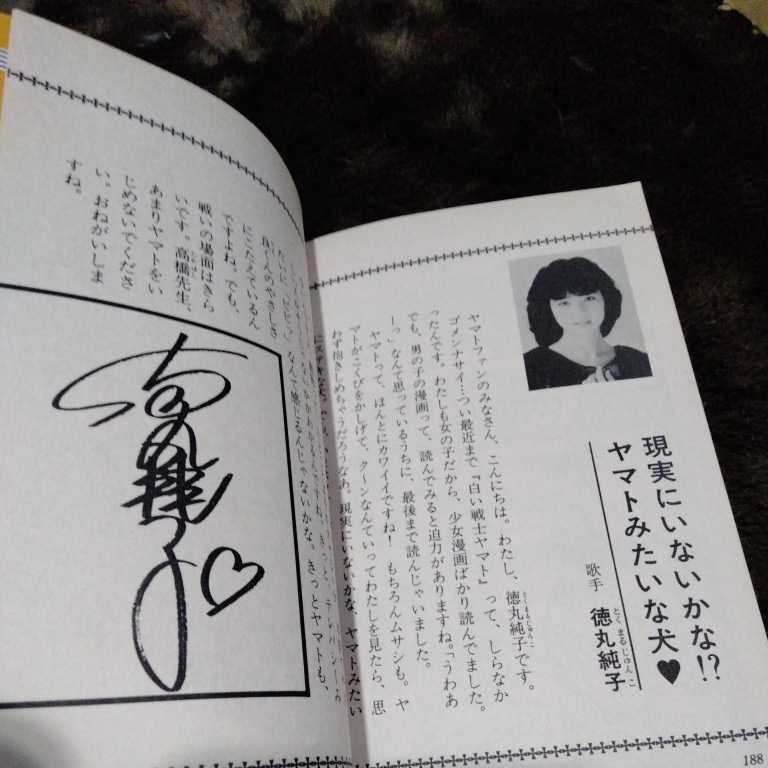 現実にいないかな!?
ヤマトみたいな犬♥
歌手 徳丸純子
とくまるじゅんこ
ヤマトファンのみなさん、こんにちは。わたし、徳丸純子です。
とくまるじゅんこ
ゴメンナサイ…つい最近まで『白い戦士ヤマト』って、しらなか
ったんです。わたしも女の子だから、少女漫画ばかり読んでました。
でも、男の子の漫画って、読んでみると迫力がありますね。「うわあ
ーっ」なんて思っているうちに、最後まで読んじゃいました。
ヤマトって、ほんとにカワイイですね！ もちろんムサシも。ヤ
マトがこくびをかしげて、クーンなんていってわたしを見たら、思
わず抱きしめちゃうだろうなあ。現実にいないかな、ヤマトみたい
188
なんて感じるんじゃないかな。きっとヤマトも、
良くんのやさしさ
にこたえているん
ですよね。でも、
戦いの場面はきら
いです。高橋先生、
あまりヤマトをい
じめないでくださ
い。おねがいしま
すね。